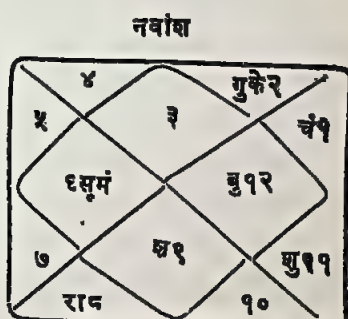 नवांश
४ गुके२
५ ३ चं१
६सूमं बु१२
७ श९ शु११
रा८ १०